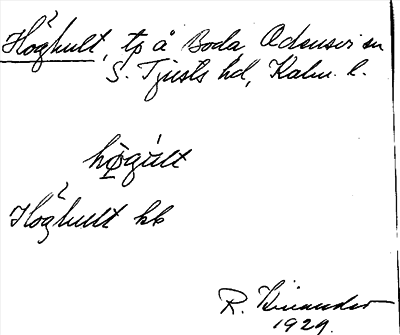 Höghult, tp å Boda, Odensvi sn
S. Tjusts hd, Kalm. l.
högult
Höghult hb
R.
1929.